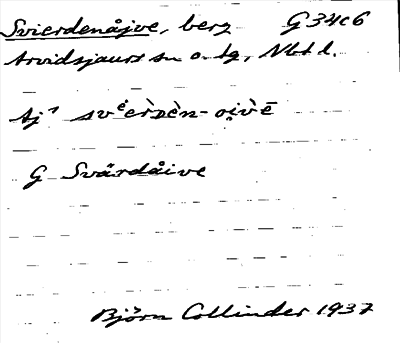 Svierdenåjve, berg G 34c6
Arvidsjaurs sn o. tg, Nbt l.
Aj¹ svᵉ̀erDèn-oi̯vē
G Svärdåive
Björn Collinder 1937